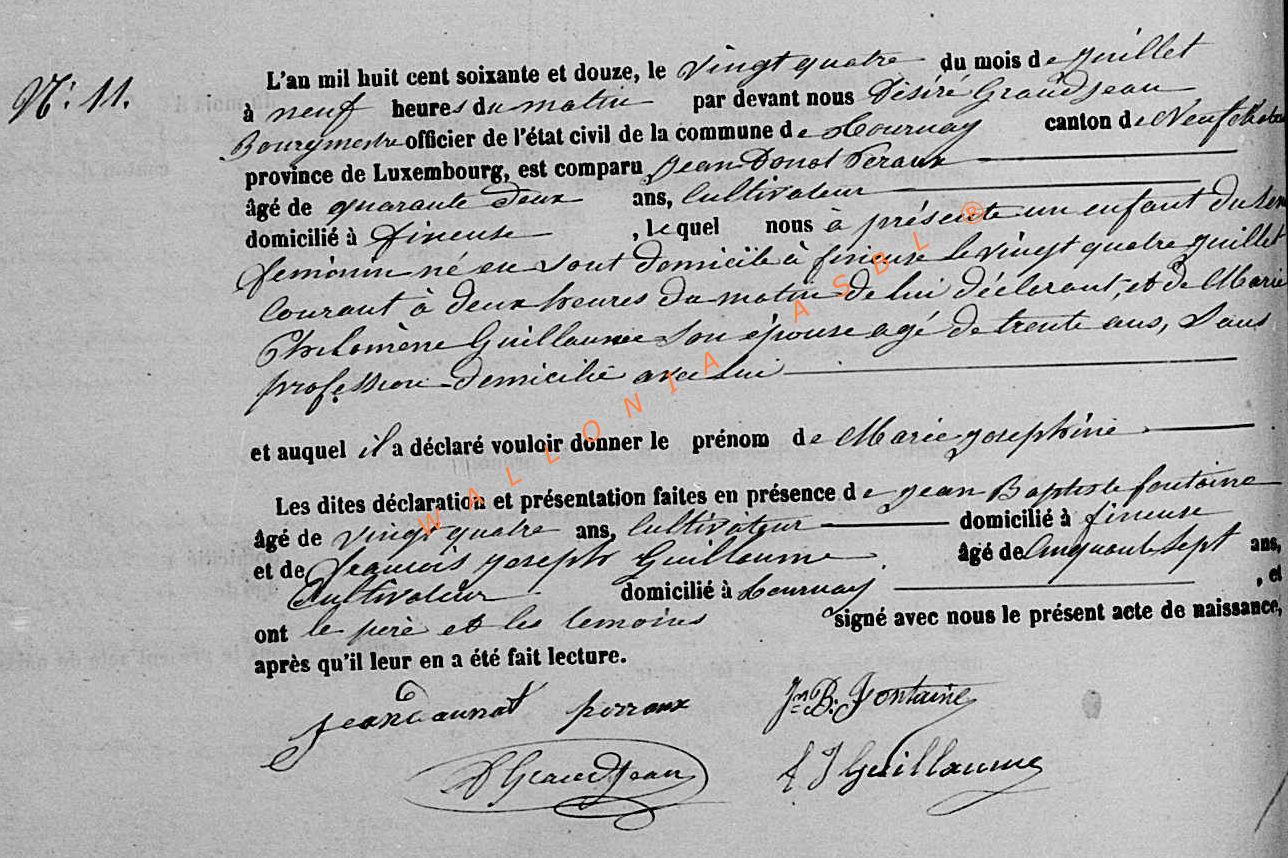 N° 11.
L'an mil huit cent soixante et douze, le vingt quatre du mois de juillet
à neuf heures du matin par devant nous Désiré Grandjean
Bourgmestre officier de l'état civil de la commune de Tournay canton de Neufchateau
province de Luxembourg, est comparu Jean Donat Peraux
âgé de quarante deux ans, Cultivateur
domicilié à fineuse , lequel nous à présente un enfant du sexe
feminin né en sont domicile à fineuse le vingt quatre juillet
courant à deux heures du matin de lui déclarant, et de Marie
Philomène Guillaume son épouse agé de trente ans, Sans
profession domicilié avec lui
et auquel il a déclaré vouloir donner le prénom de Marie josephine
Les dites déclaration et présentation faites en présence de jean Baptiste fontaine
âgé de vingt quatre ans, Cultivateur domicilié à fineuse
et de françois joseph Guillaume âgé de Cinquante Sept ans,
Cultivateur domicilié à Tournay , et
ont le père et les temoins signé avec nous le présent acte de naissance,
après qu'il leur en a été fait lecture.
jean daunat perraux Jn B. Fontaine
D Grandjean f J Guillaume
WALLONIA ASBL ®